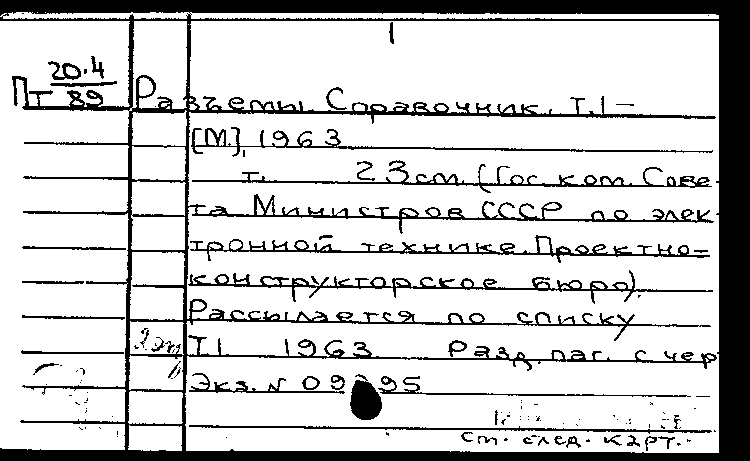 1
20.4
Пт 89 Разъемы. Справочник. Т.1—
[М.], 1963
т. 23см. (Гос. ком. Сове-
та Министров СССР по элек-
тронной технике. Проектно=
конструкторское бюро).
Рассылается по списку
2 эк Т1. 1963 Разд. паг. с чер
Экз. №
см. след. карт.